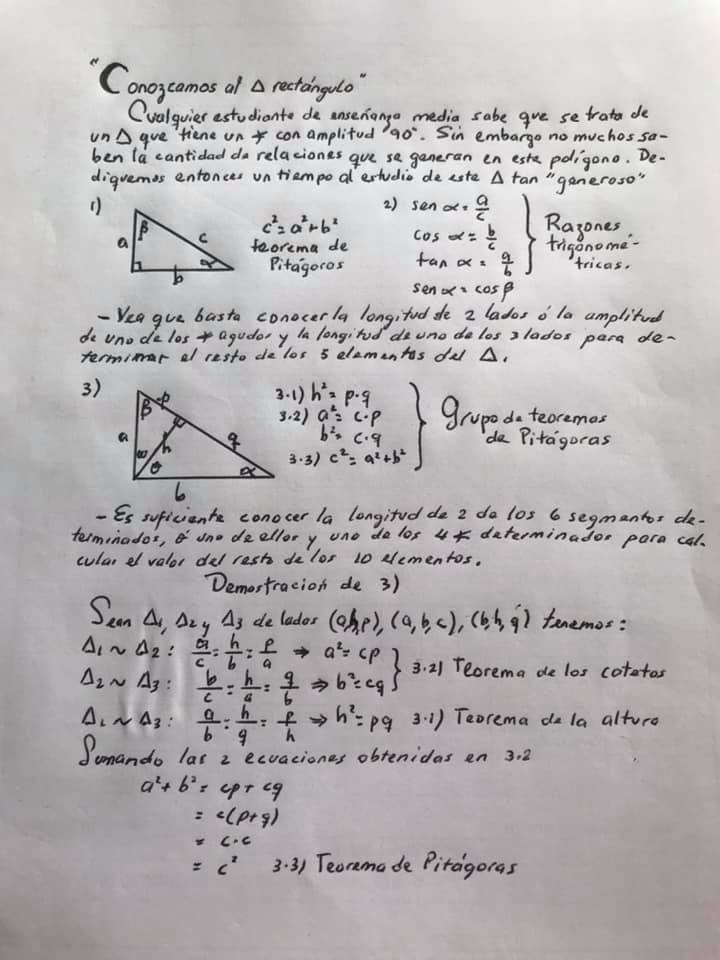 "Conozcamos al Δ rectángulo"
Cualquier estudiante de enseñanza media sabe que se trata de
un Δ que tiene un ∢ con amplitud 90°. Sin embargo no muchos sa-
ben la cantidad de relaciones que se generan en este polígono. De-
diquemos entonces un tiempo al estudio de este Δ tan "generoso"
1)
a β c α b
c² = a² + b²
teorema de
Pitágoras
2) sen α = a/c
cos α = b/c
tan α = a/b
sen α = cos β
Razones
trigonomé-
tricas.
- Vea que basta conocer la longitud de 2 lados ó la amplitud
de uno de los ∢ agudos y la longitud de uno de los 3 lados para de-
terminar el resto de los 5 elementos del Δ.
3)
a β p h q ω θ α b
3.1) h² = p·q
3.2) a² = c·p
b² = c·q
3.3) c² = a² + b²
Grupo de teoremas
de Pitágoras
- Es suficiente conocer la longitud de 2 de los 6 segmentos de-
terminados, ó uno de ellos y uno de los 4 ∢ determinados para cal-
cular el valor del resto de los 10 elementos.
Demostración de 3)
Sean Δ₁, Δ₂ y Δ₃ de lados (a,h,p), (a,b,c), (b,h,q) tenemos:
Δ₁ ~ Δ₂: a/c = h/b = p/a ⇒ a² = cp
Δ₂ ~ Δ₃: b/c = h/a = q/b ⇒ b² = cq
3.2) Teorema de los catetos
Δ₁ ~ Δ₃: a/b = h/q = p/h ⇒ h² = pq 3.1) Teorema de la altura
Sumando las 2 ecuaciones obtenidas en 3.2
a² + b² = cp + cq
= c(p+q)
= c·c
= c² 3.3) Teorema de Pitágoras